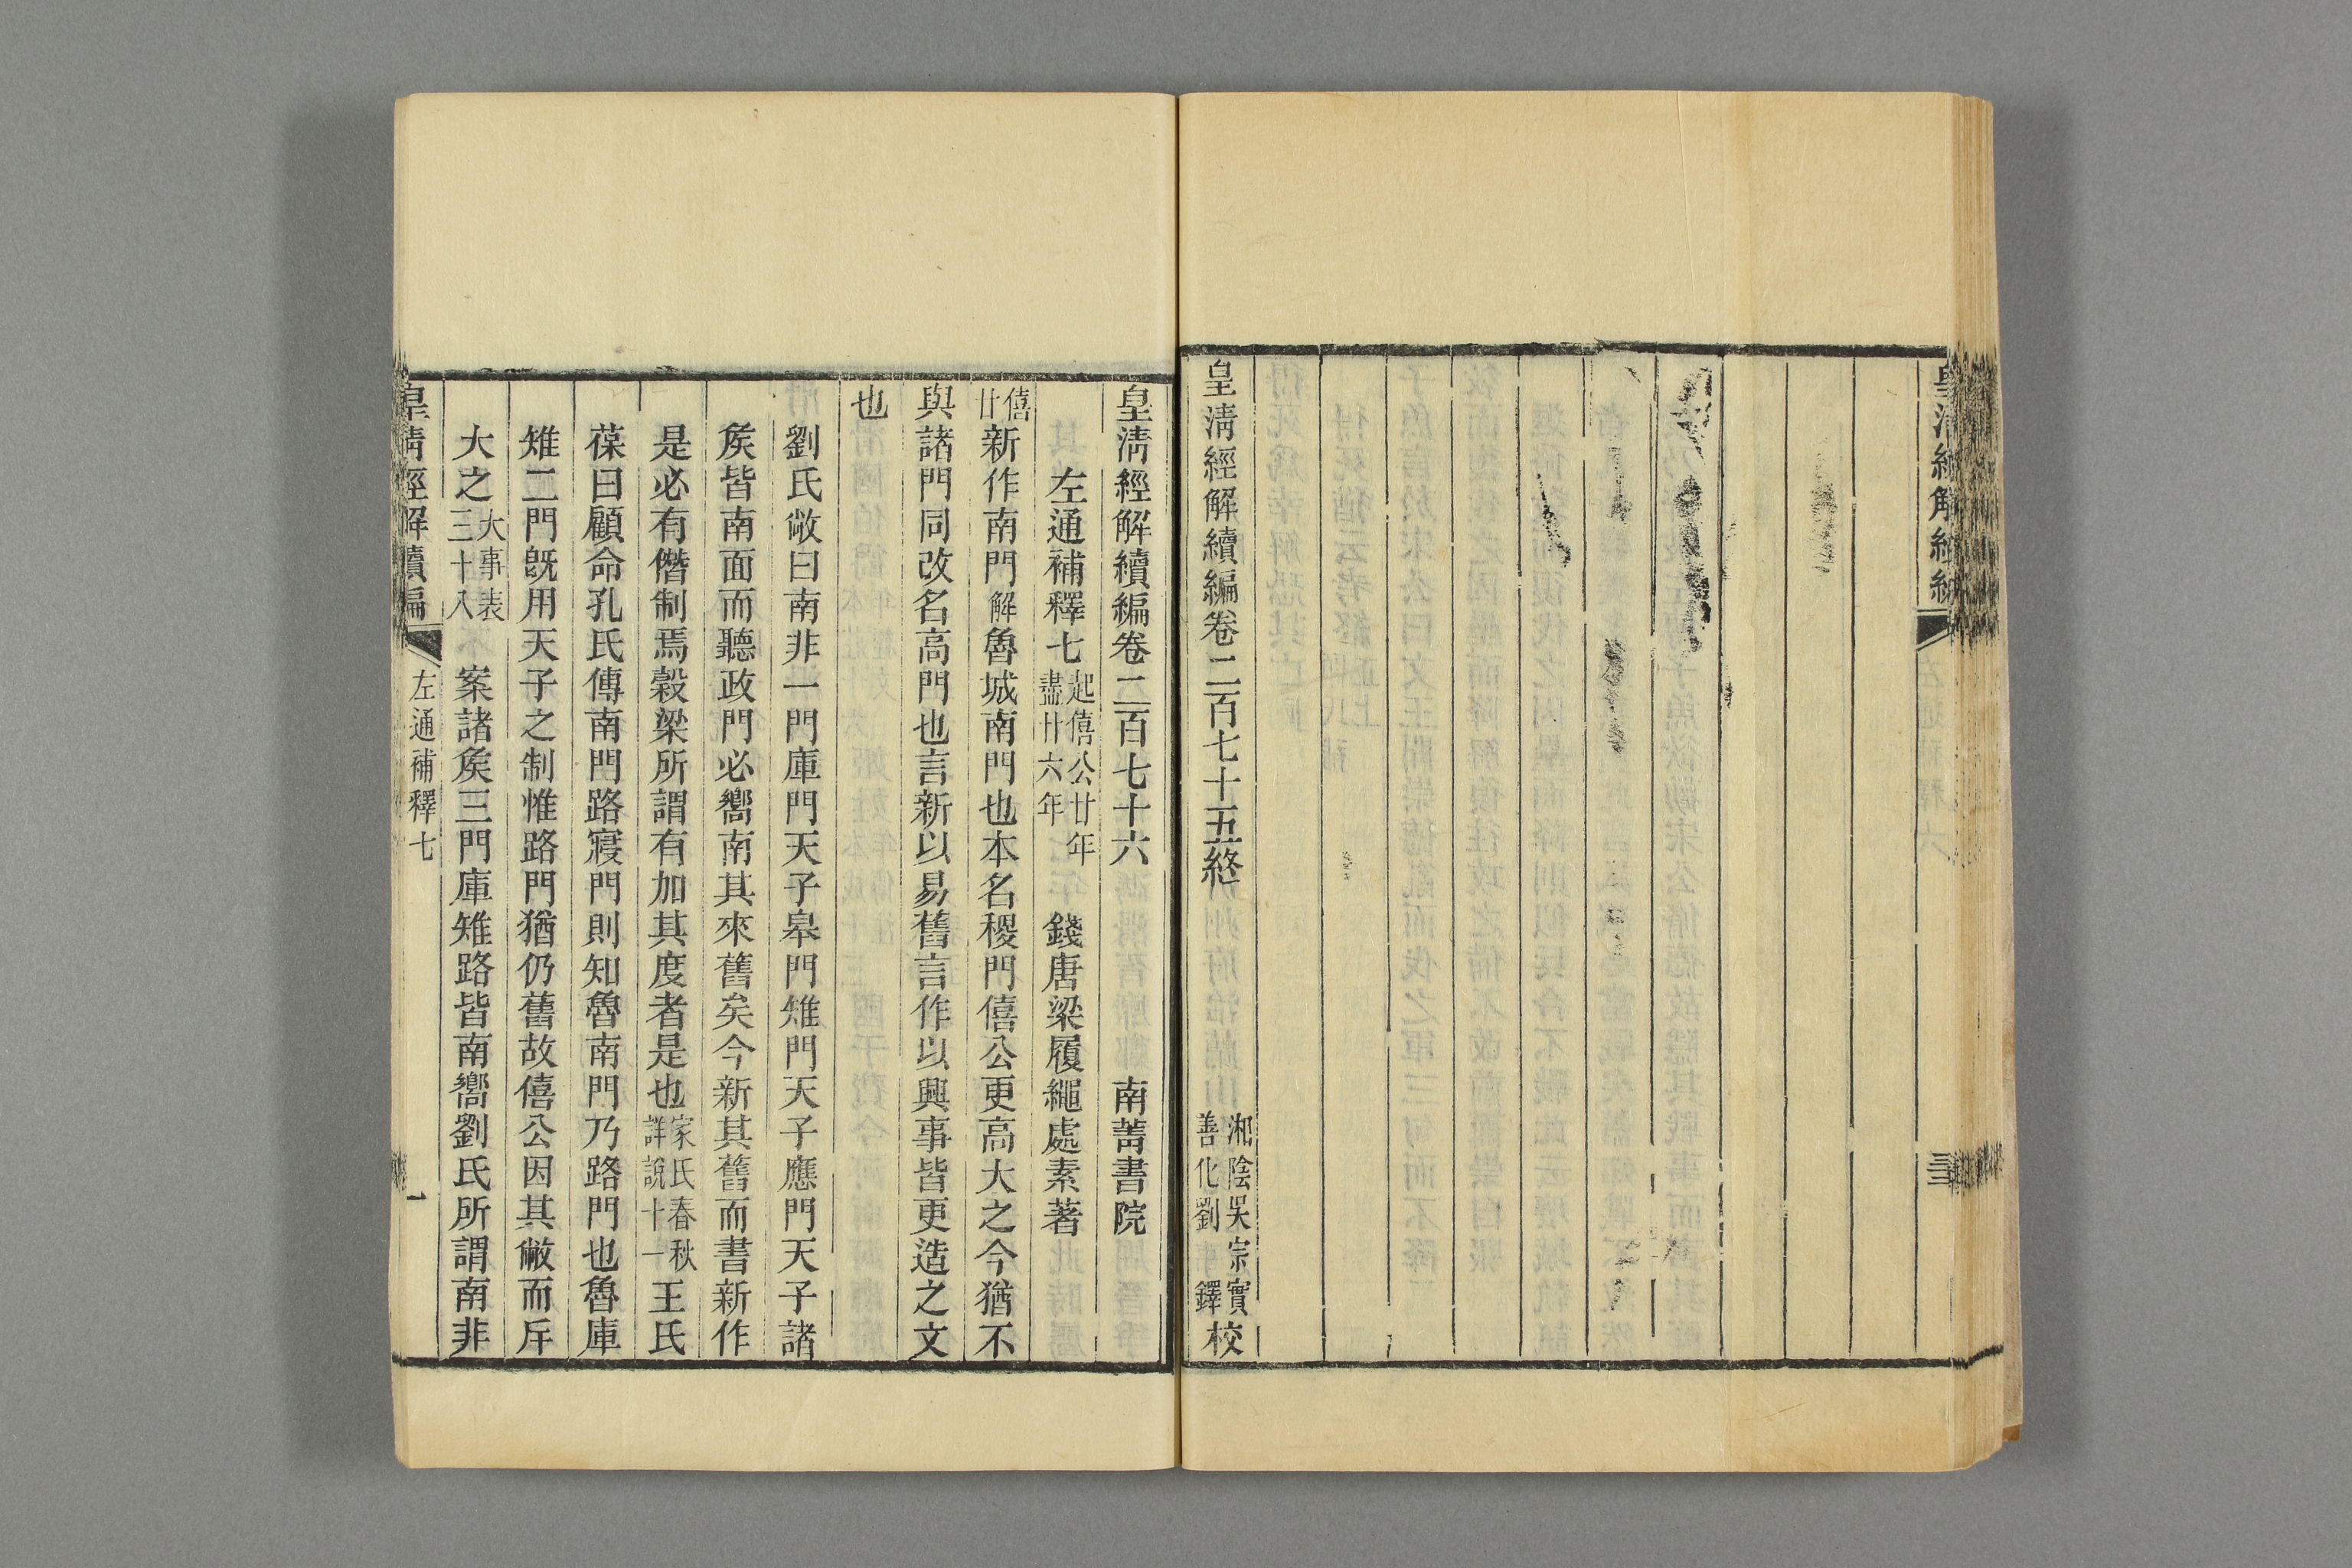 皇清經解續編卷二百七十五終
湘陰吳宗實
善化劉 鐸
校
皇清經解續編卷二百七十六 南菁書院
左通補釋七 起僖公廿年 盡廿六年 錢唐梁履繩處素著
僖廿新作南門解魯城南門也本名稷門僖公更高大之今猶不
與諸門同改名高門也言新以易舊言作以興事皆更造之文
也
劉氏敞曰南非一門庫門天子皋門雉門天子應門天子諸
矦皆南面而聽政門必嚮南其來舊矣今新其舊而書新作
是必有僭制焉穀梁所謂有加其度者是也家氏春秋詳說十一王氏
葆曰顧命孔氏傳南門路寢門則知魯南門乃路門也魯庫
雉二門旣用天子之制惟路門猶仍舊故僖公因其敝而斥
大之大事表三十八 案諸矦三門庫雉路皆南嚮劉氏所謂南非
皇清經解續編 左通補釋七 一